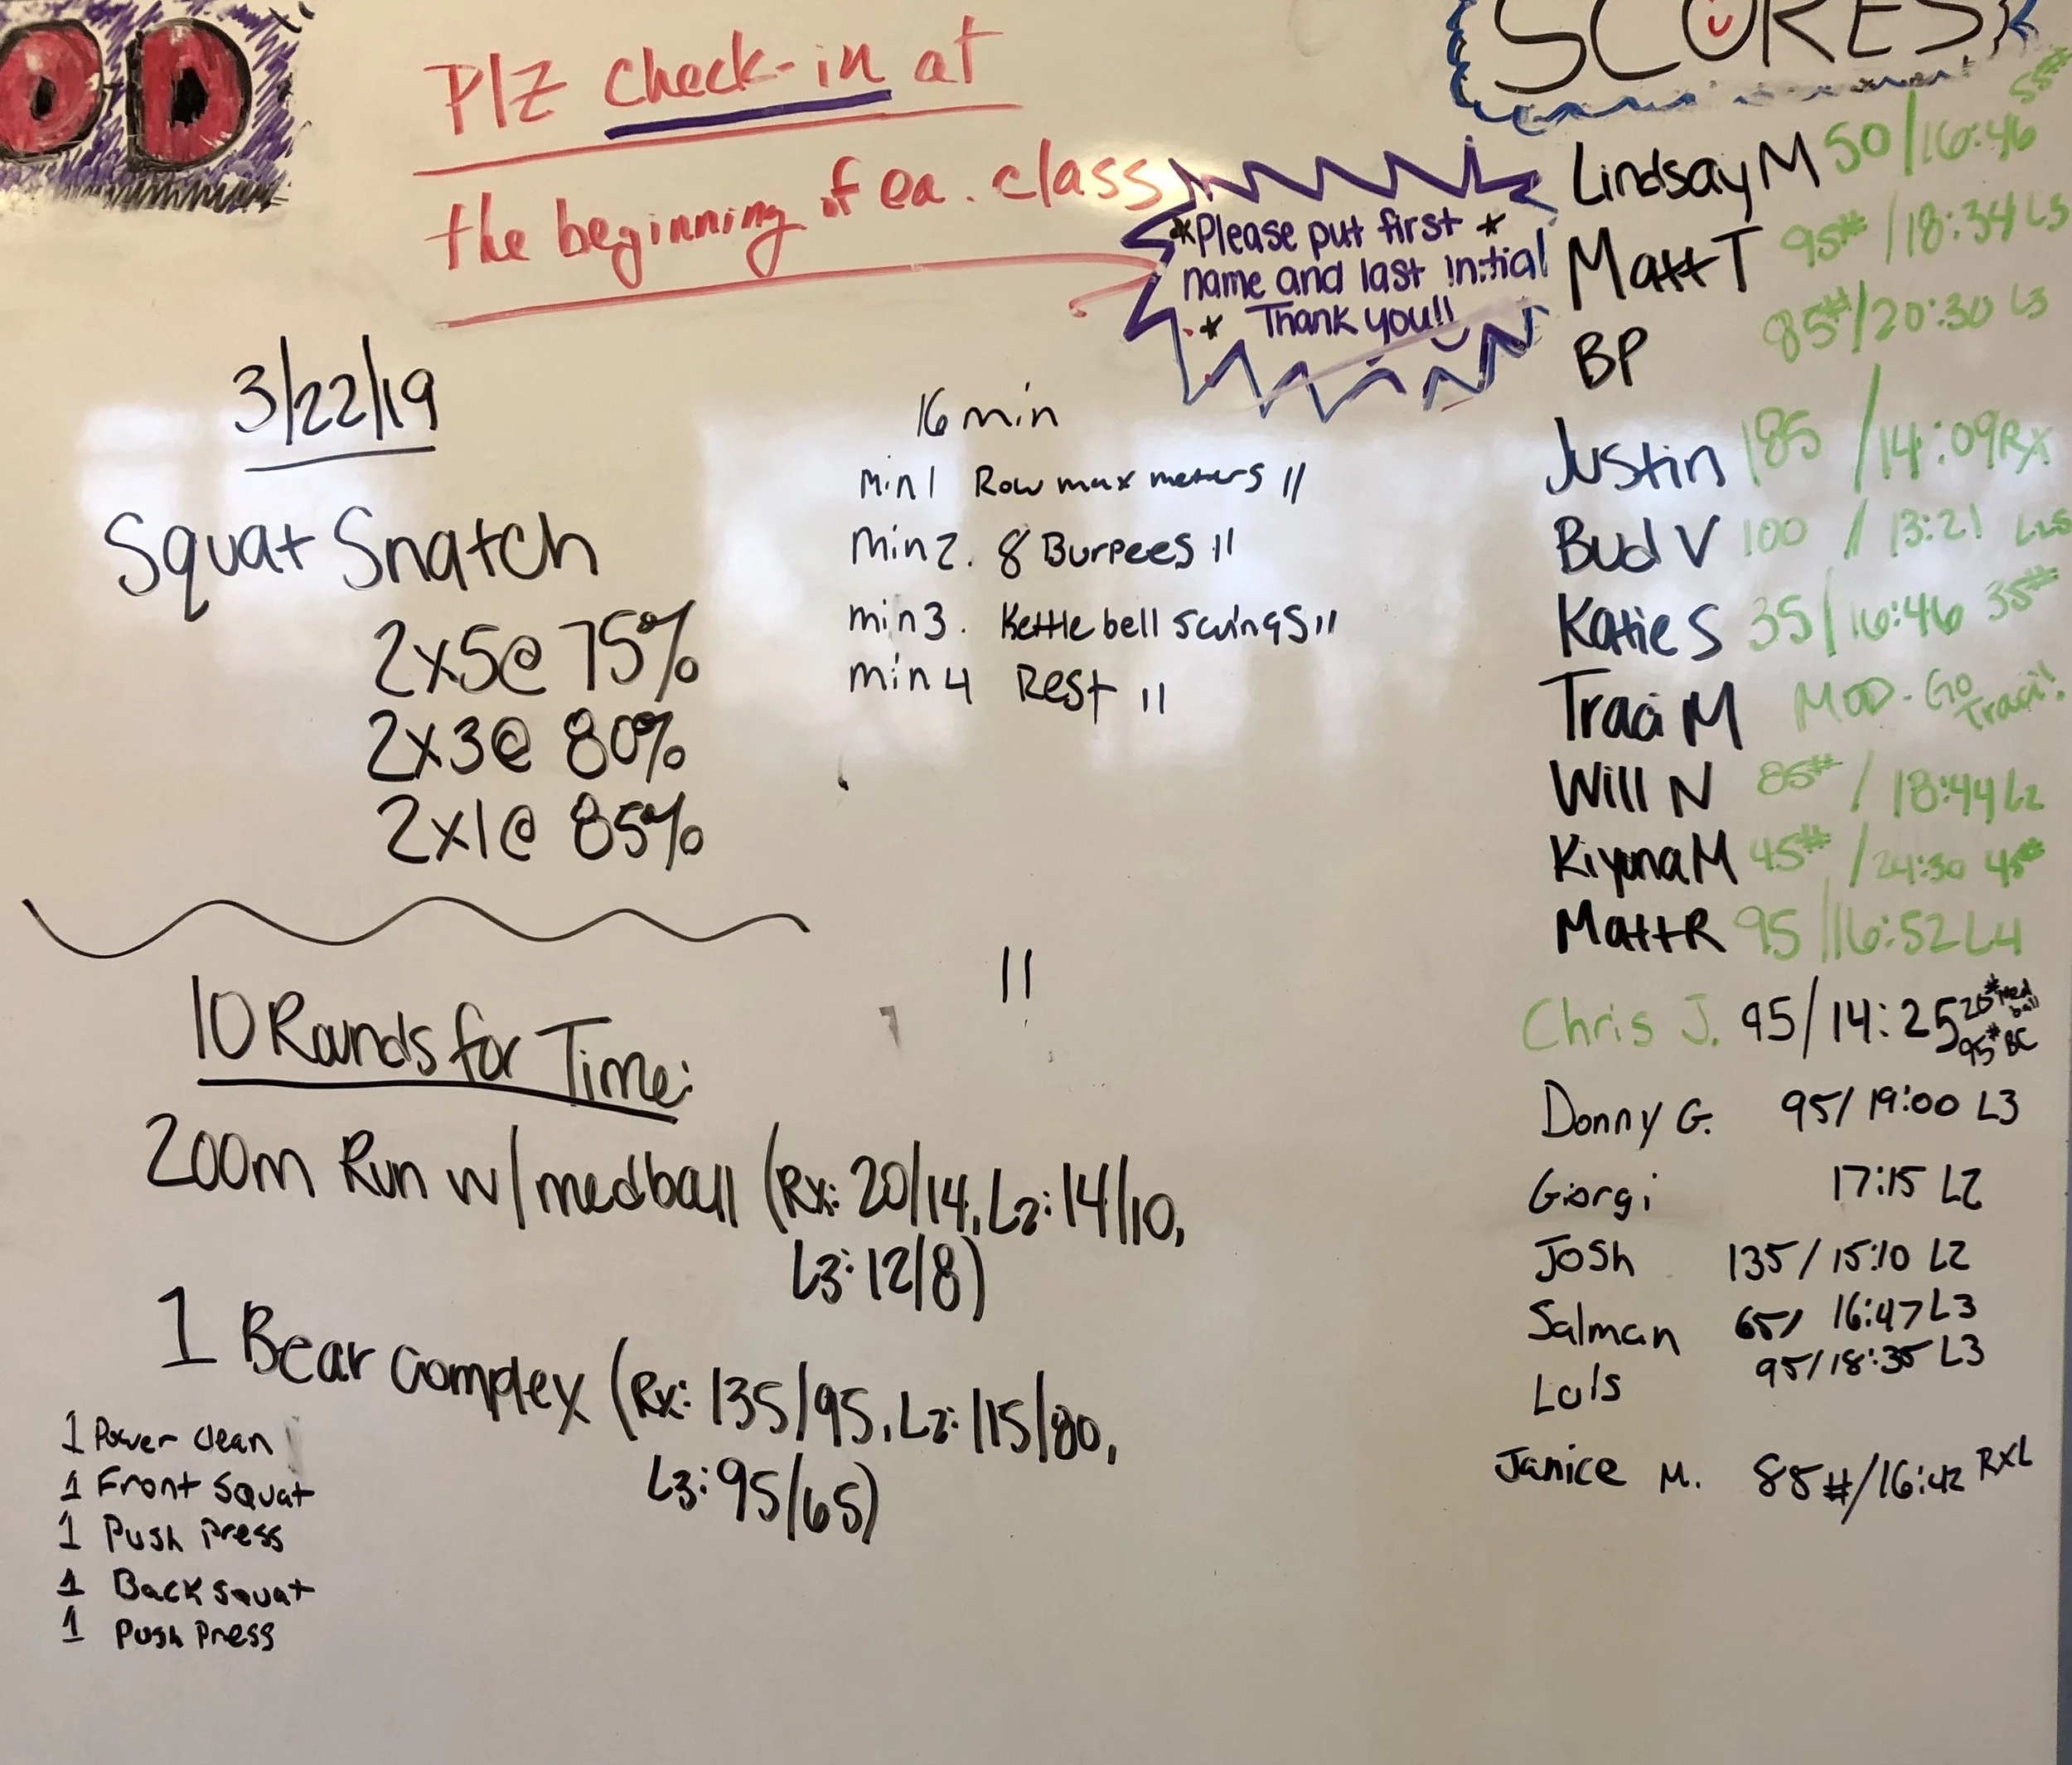 OD
Plz check-in at
the beginning of ea. class
*Please put first *
name and last initial
* Thank you!!
3/22/19
Squat Snatch
2x5@ 75%
2x3@ 80%
2x1@ 85%
16 min
min 1 Row max meters 11
min 2. 8 Burpees 11
min 3. Kettle bell swings 11
min 4 Rest 11
11
10 Rounds for Time:
200m Run w/ medball (Rx: 20/14, L2: 14/10,
L3: 12/8)
1 Bear Complex (Rx: 135/95, L2: 115/80,
L3: 95/65)
1 Power clean
1 Front Squat
1 Push Press
1 Back squat
1 Push Press
SCORES
Lindsay M 50/16:46 55#
Matt T 95#/18:34 L3
BP 85#/20:30 L3
Justin 185/14:09 Rx
Bud V 100/13:21
Katie S 35/16:46 35#
Traci M MOD - Go Traci!
Will N 85#/18:44 L2
Kiyona M 45#/24:30 45#
Matt R 95/16:52 L4
Chris J. 95/14:25 20# Med ball 95# BC
Donny G. 95/19:00 L3
Giorgi 17:15 L2
Josh 135/15:10 L2
Salman 65/16:47 L3
Luis 95/18:35 L3
Janice M. 85#/16:42 RXL